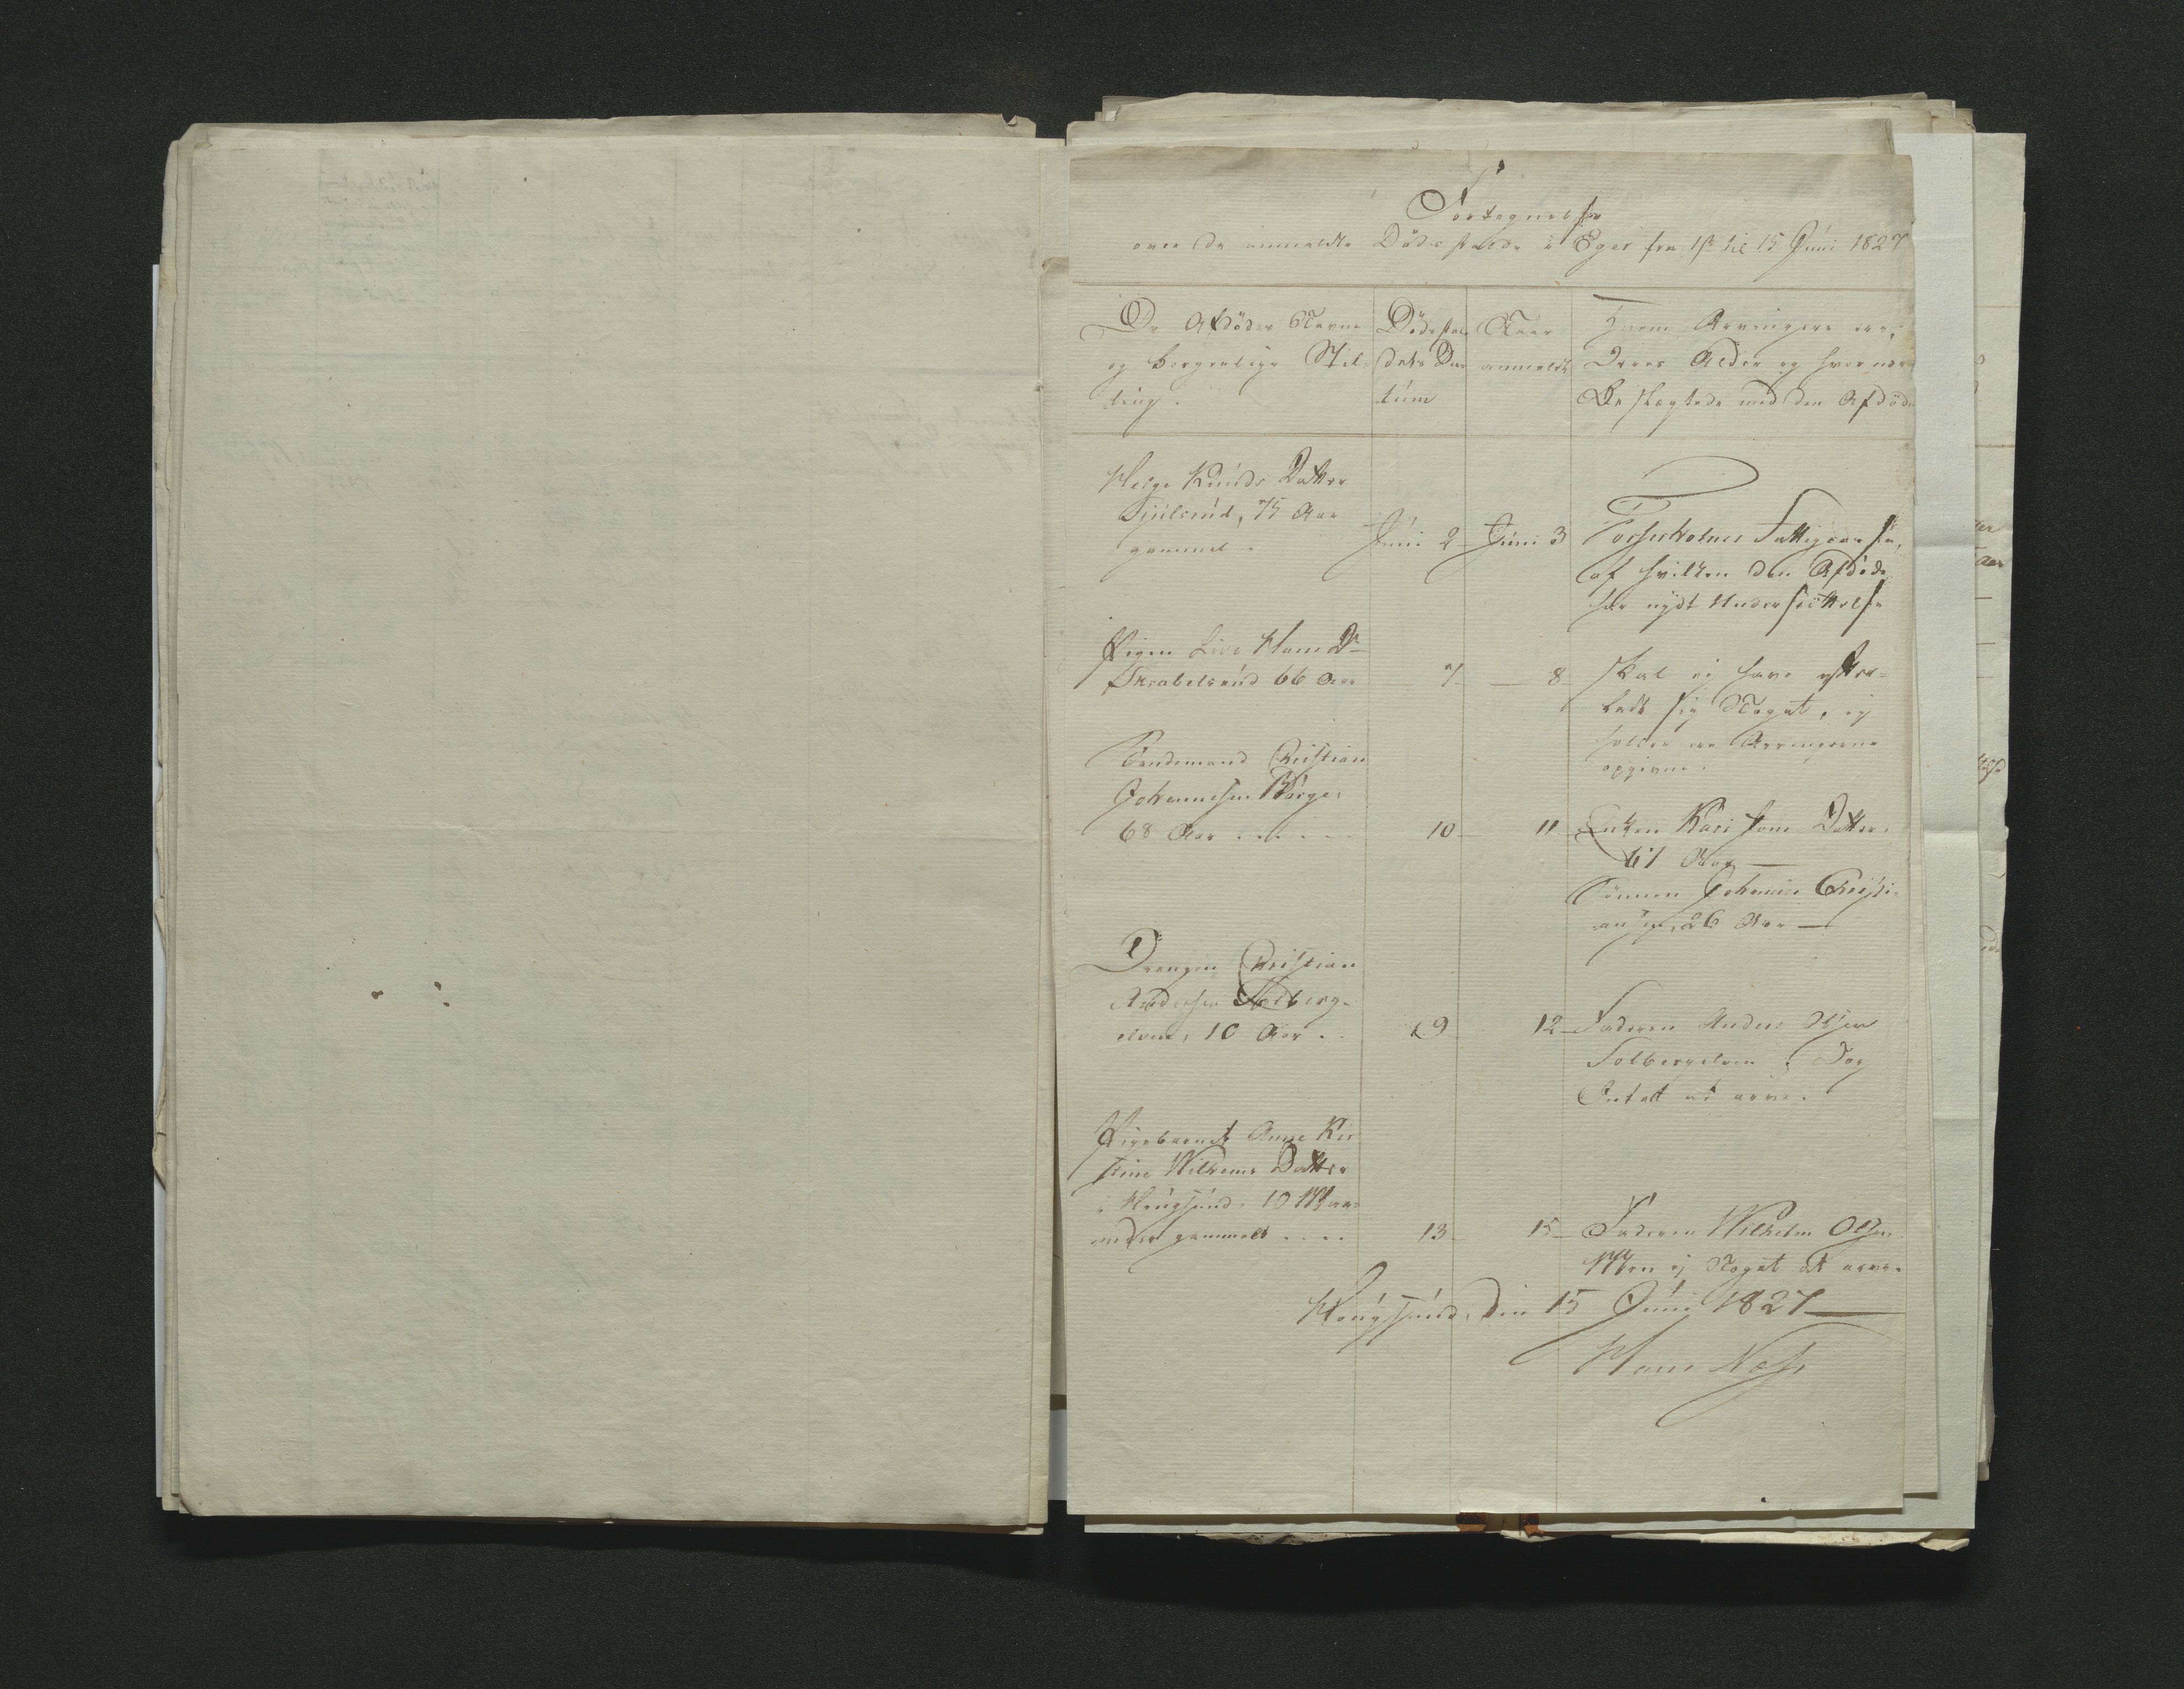 Fortegnelse
over de anmeldte Dödsfalde i Eger fra 1ste til 15 Júni 1827
De Afdödes Navne
og borgerlige Stil-
ling.
Dödsfal-
dets Da-
túm
Naar
anmeldt
Hvem Arvingere ere,
Deres Alder og hvor nær
Beslægtede med den Afdöde
Helge Knúds Datter
75 Aar
gammel.
Júni 2
Júni 3
Fattigcasse,
af hvilken den Afdöde
har nydt Understöttelse
Pigen Live Hans Dr
Skrabelsrúd 66 Aar
7
8
Skal ej have efter-
ladt sig Noget, ej
heller ere Arvingerne
opgivne.
Bondemand Christian
Johannesen Borge
68 Aar
10
11
Enken Kari Hans Datter
61 Aar
Sönnen Johannes Christi-
ansen, 26 Aar
Drengen Christian
Andersen Solberg-
elven, 10 Aar.
9
12
Faderen Anders Olsen
Solbergelven. Dog
Intet at arve.
Pigebarnet Anne Kir-
stine Wilhems Datter
i Høúgsúnd. 10 Maa-
neder gammelt
13
15
Faderen Wilhelm Olsen
Men ej Noget at arve.
Høúgsúnd, den 15 Júni 1827
Hans